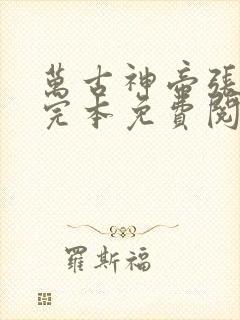 萬古神帝張
完本免費閱
羅斯福